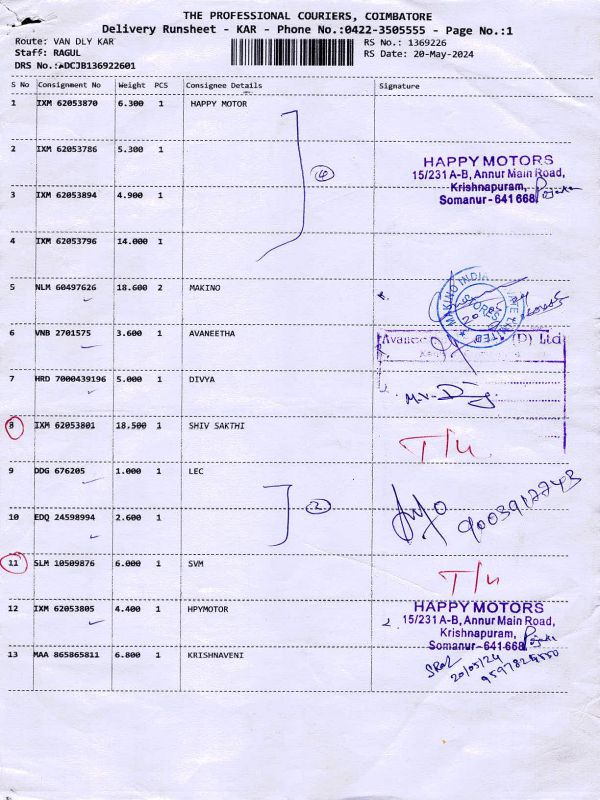 THE PROFESSIONAL COURIERS, COIMBATORE
Delivery Runsheet - KAR - Phone No.:0422-3505555 - Page No.:1
Route: VAN DLY KAR RS No.: 1369226
Staff: RAGUL RS Date: 20-May-2024
DRS No.:ADCJB136922601
S No Consignment No Weight PCS Consignee Details Signature
1 IXM 62053870 6.300 1 HAPPY MOTOR
2 IXM 62053786 5.300 1
HAPPY MOTORS
15/231 A-B, Annur Main Road,
Krishnapuram,
Somanur - 641 668.
3 IXM 62053894 4.900 1
4
4 IXM 62053796 14.000 1
5 NLM 60497626 18.600 2 MAKINO
MAKINO INDIA
STORES
LIMITED
6 VNB 2701575 3.600 1 AVANEETHA
Avanee (P) Ltd
7 HRD 7000439196 5.000 1 DIVYA
M.V.
8 IXM 62053801 18.500 1 SHIV SAKTHI
9 DDG 676205 1.000 1 LEC
2
10 EDQ 24598994 2.600 1
11 SLM 10509876 6.000 1 SVM
12 IXM 62053805 4.400 1 HPYMOTOR
HAPPY MOTORS
15/231 A-B, Annur Main Road,
Krishnapuram,
Somanur - 641 668.
13 MAA 865865811 6.800 1 KRISHNAVENI
20/05/24